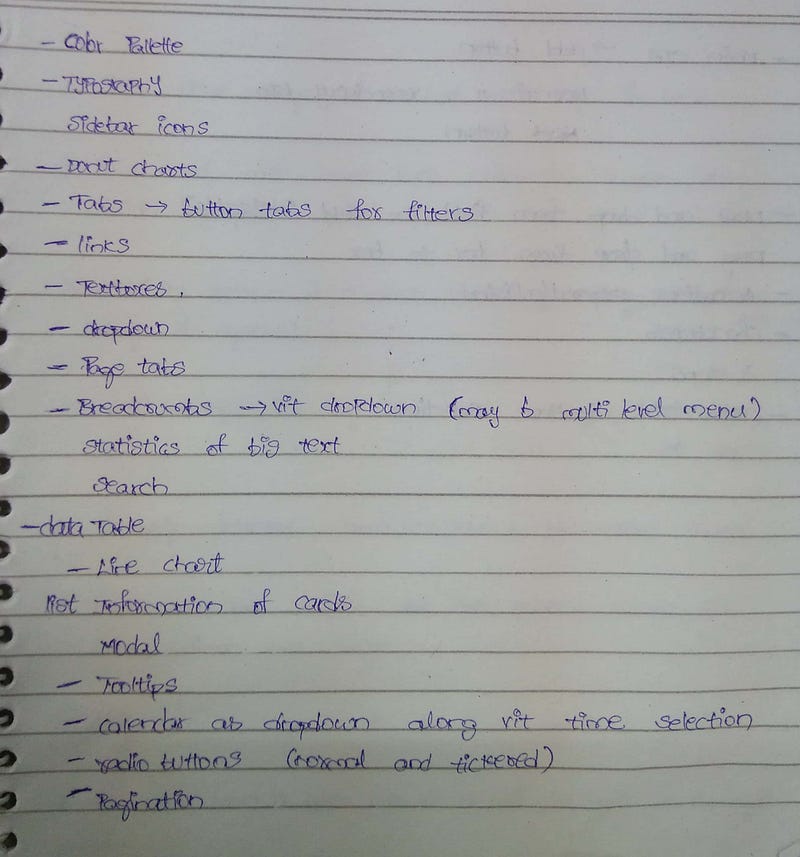 - Color Pallette
- Typography
Sidebar icons
- Donut charts
- Tabs → button tabs for filters
- links
- Textboxes.
- dropdown
- Page tabs
- Breadcrumbs → vit dropdown (may b multi level menu)
statistics of big text
Search
- data Table
- Line chart
list Information of cards
Modal
- Tooltips
- calendar as dropdown along vit time selection
- radio buttons (normal and tickered)
- Pagination